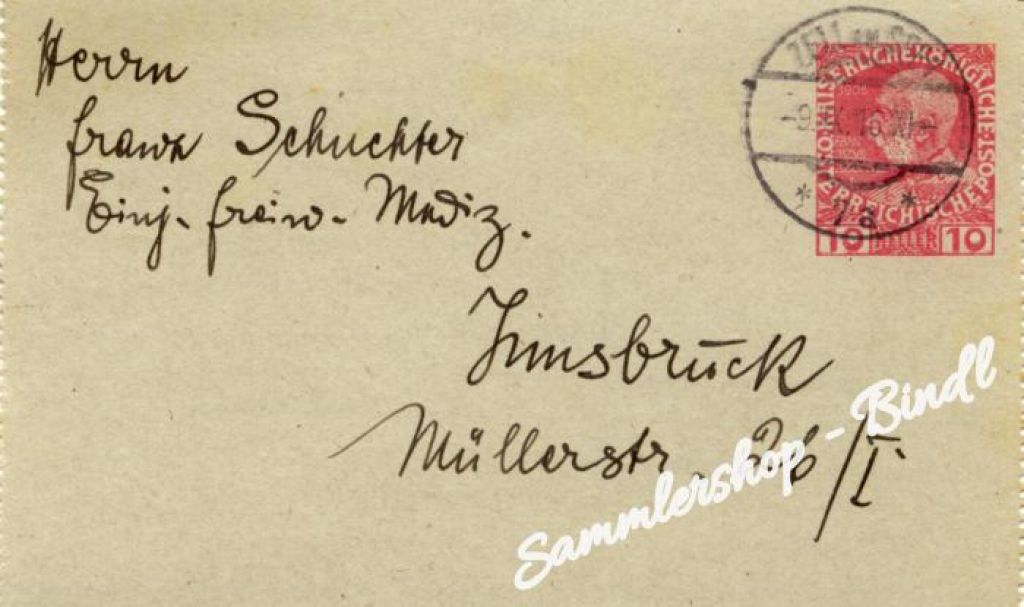 Herrn
Franz Schuchter
Einj. freiw. Mediz.
Innsbruck
Müllerstr. /I.
ZELL AM SEE
KAISERLICHE KÖNIGLICHE POST
ÖSTERREICHISCHE
1908
10 HELLER 10
* 7a *
Sammlershop - Bindl